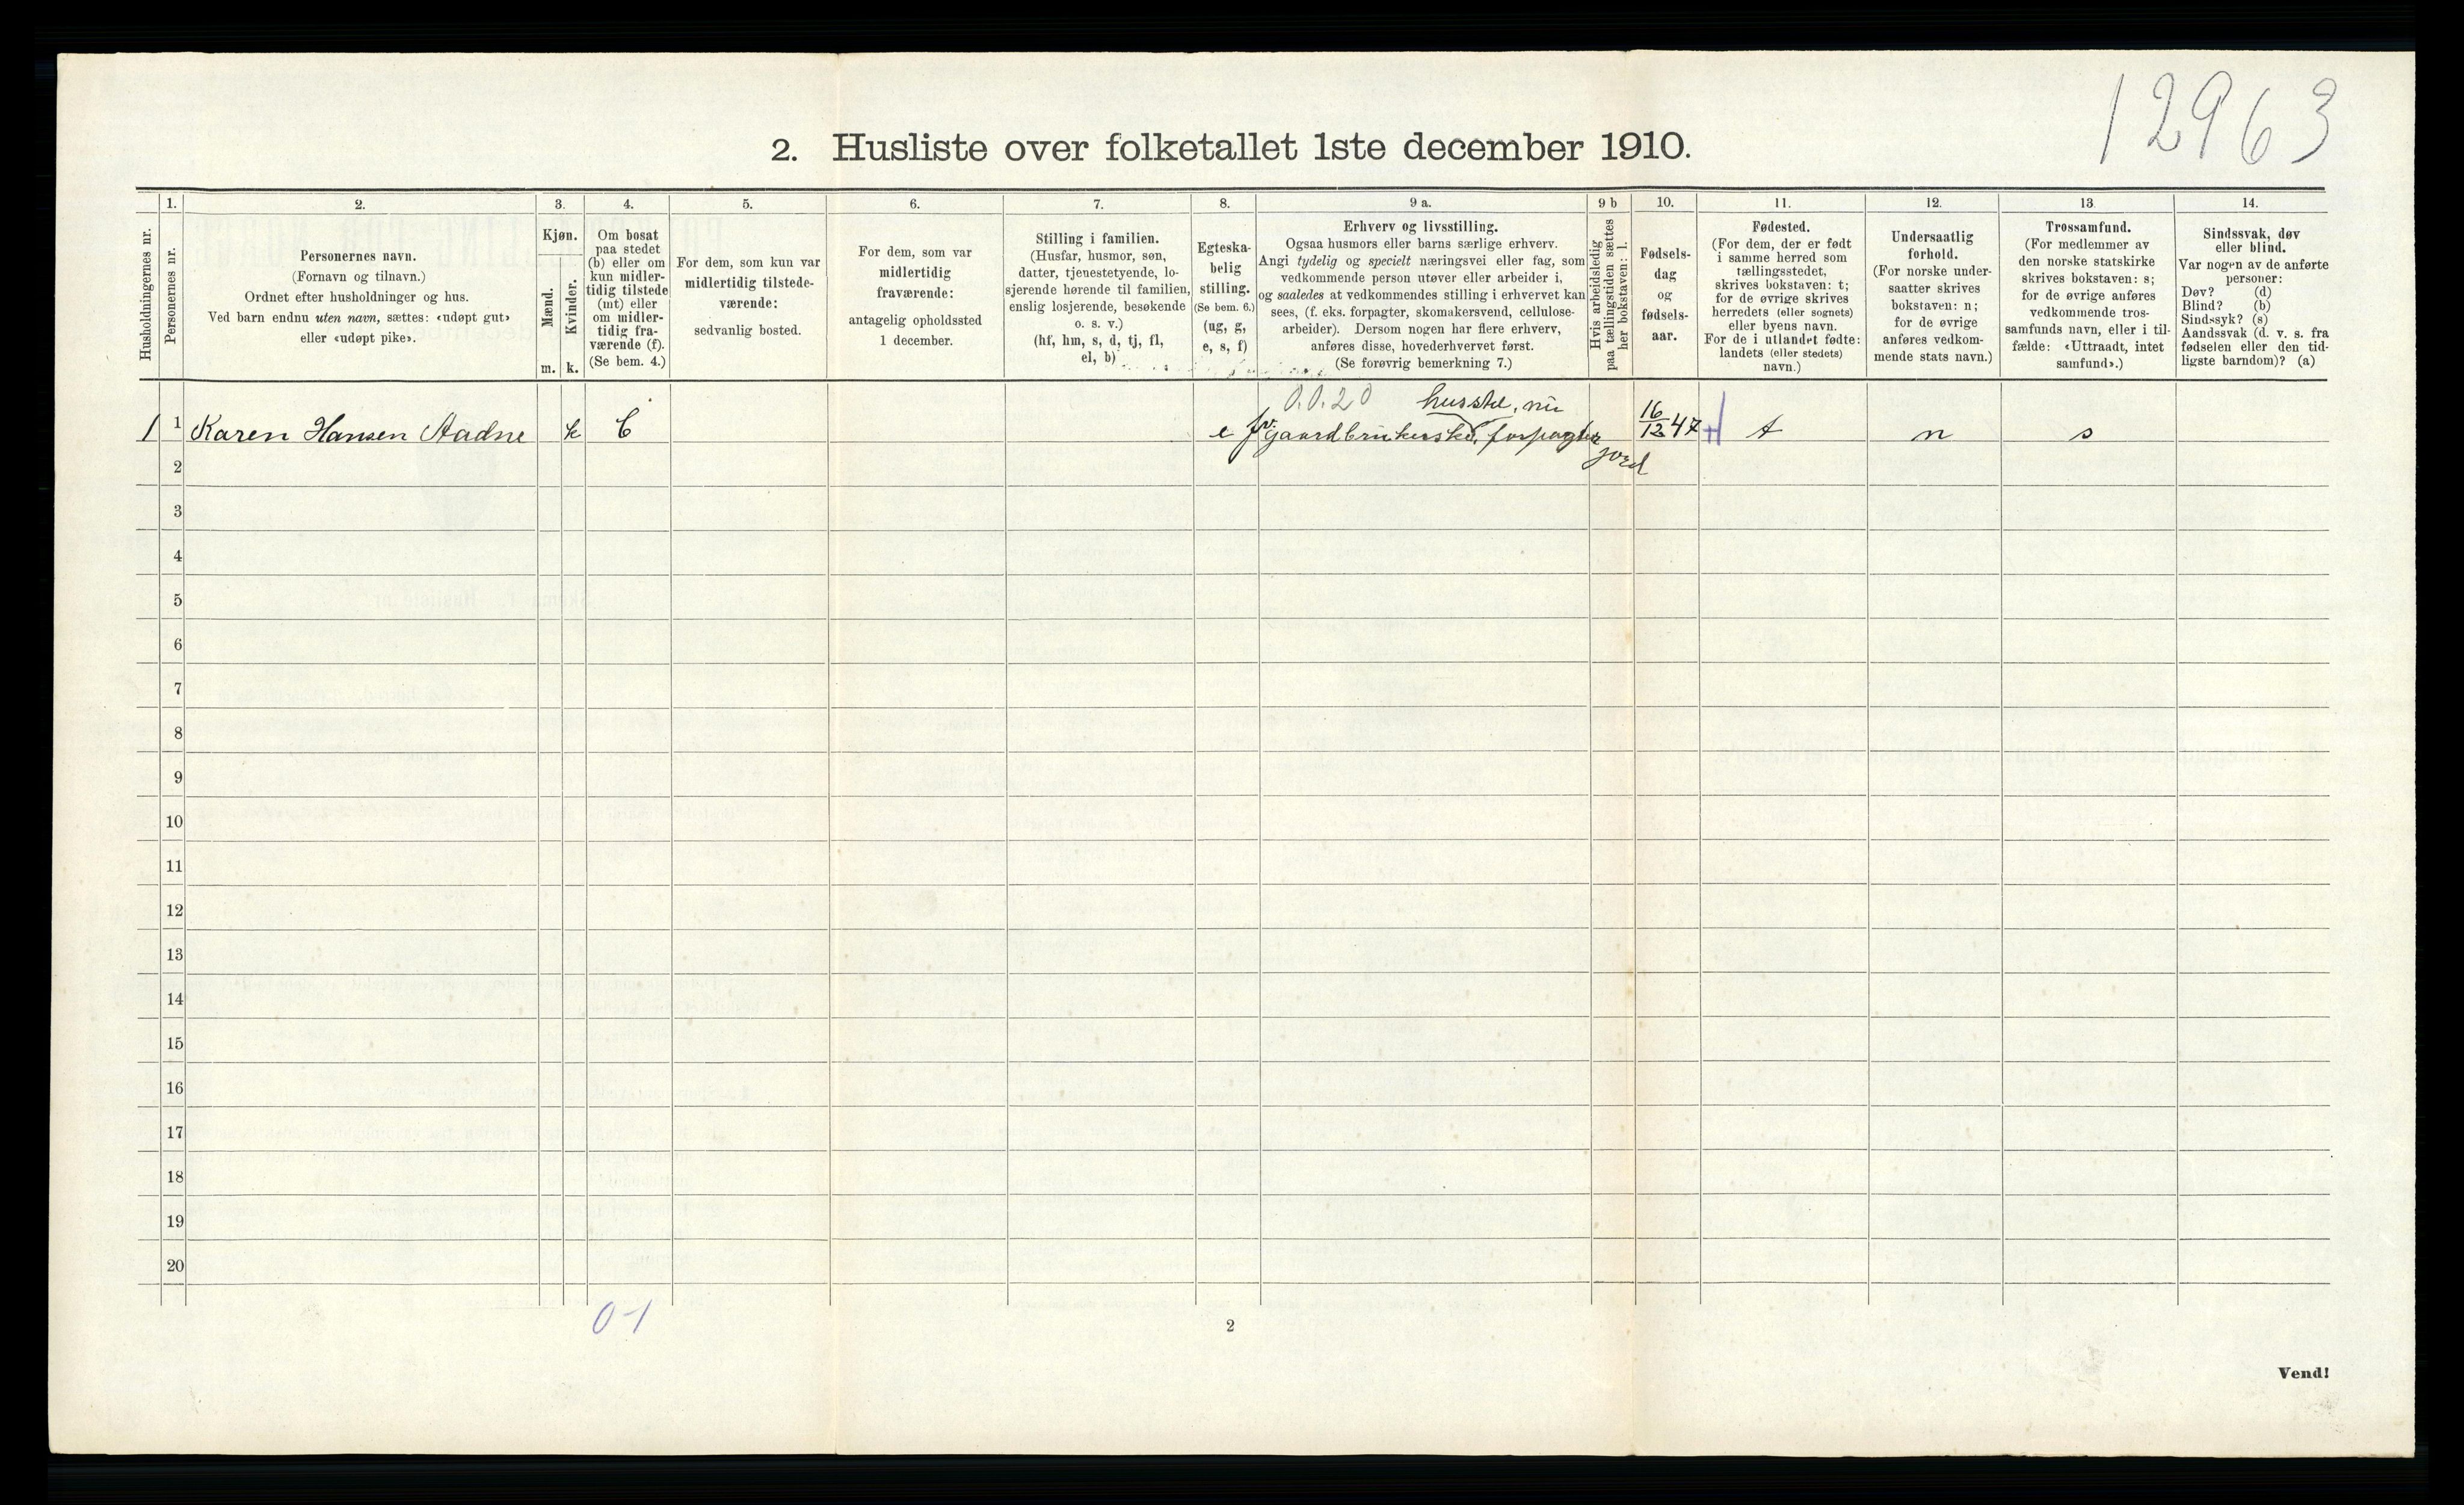 12963
2. Husliste over folketallet 1ste december 1910.
Husholdningernes nr.
1.
Personernes nr.
2.
Personernes navn.
(Fornavn og tilnavn.)
Ordnet efter husholdninger og hus.
Ved barn endnu uten navn, sættes: «udøpt gut»
eller «udøpt pike».
3.
Kjøn.
Mænd.
Kvinder.
m. k.
4.
Om bosat
paa stedet
(b) eller om
kun midler-
tidig tilstede
(mt) eller
om midler-
tidig fra-
værende (f).
(Se bem. 4.)
5.
For dem, som kun var
midlertidig tilstede-
værende:
sedvanlig bosted.
6.
For dem, som var
midlertidig
fraværende:
antagelig opholdssted
1 december.
7.
Stilling i familien.
(Husfar, husmor, søn,
datter, tjenestetyende, lo-
sjerende hørende til familien,
enslig losjerende, besøkende
o. s. v.)
(hf, hm, s, d, tj, fl,
el, b)
8.
Egteska-
belig
stilling.
(Se bem. 6.)
(ug, g,
e, s, f)
9 a.
Erhverv og livsstilling.
Ogsaa husmors eller barns særlige erhverv.
Angi tydelig og specielt næringsvei eller fag, som
vedkommende person utøver eller arbeider i,
og saaledes at vedkommendes stilling i erhvervet kan
sees, (f. eks. forpagter, skomakersvend, cellulose-
arbeider). Dersom nogen har flere erhverv,
anføres disse, hovederhvervet først.
(Se forøvrig bemerkning 7.)
9 b
Hvis arbeidsledig
paa tællingstiden sættes
her bokstaven: l.
10.
Fødsels-
dag
og
fødsels-
aar.
11.
Fødested.
(For dem, der er født
i samme herred som
tællingsstedet,
skrives bokstaven: t;
for de øvrige skrives
herredets (eller sognets)
eller byens navn.
For de i utlandet fødte:
landets (eller stedets)
navn.)
12.
Undersaatlig
forhold.
(For norske under-
saatter skrives
bokstaven: n;
for de øvrige
anføres vedkom-
mende stats navn.)
13.
Trossamfund.
(For medlemmer av
den norske statskirke
skrives bokstaven: s;
for de øvrige anføres
vedkommende tros-
samfunds navn, eller i til-
fælde: «Uttraadt, intet
samfund».)
14.
Sindssvak, døv
eller blind.
Var nogen av de anførte
personer:
Døv? (d)
Blind? (b)
Sindssyk? (s)
Aandssvak (d. v. s. fra
fødselen eller den tid-
ligste barndom)? (a)
0.0.20 husstel, nu
1 1 Karen Hansen Aadne k b e fv. gaardbrukerske, forpagter 16/12 47 t n s
jord
2
3
4
5
6
7
8
9
10
11
12
13
14
15
16
17
18
19
20
0-1
2
Vend!